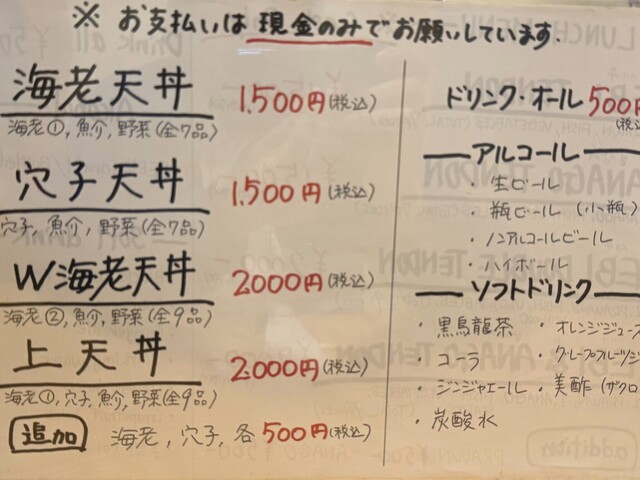 ※ お支払いは 現金のみでお願いしています.
海老天丼 1.500円(税込)
海老①,魚介,野菜(全7品)
穴子天丼 1.500円(税込)
穴子,魚介,野菜(全7品)
W海老天丼 2000円(税込)
海老②,魚介,野菜(全9品)
上天丼 2.000円(税込)
海老①,穴子,魚介,野菜(全9品)
追加 海老,穴子,各500円(税込)
ドリンク・オール 500円
(税込
アルコール
・生ビール
・瓶ビール (小瓶)
・ノンアルコールビール
・ハイボール
ソフトドリンク
・黒烏龍茶 ・オレンジジュース
・コーラ ・グレープフルーツジ
・ジンジャエール ・美酢 (ザクロ
・炭酸水